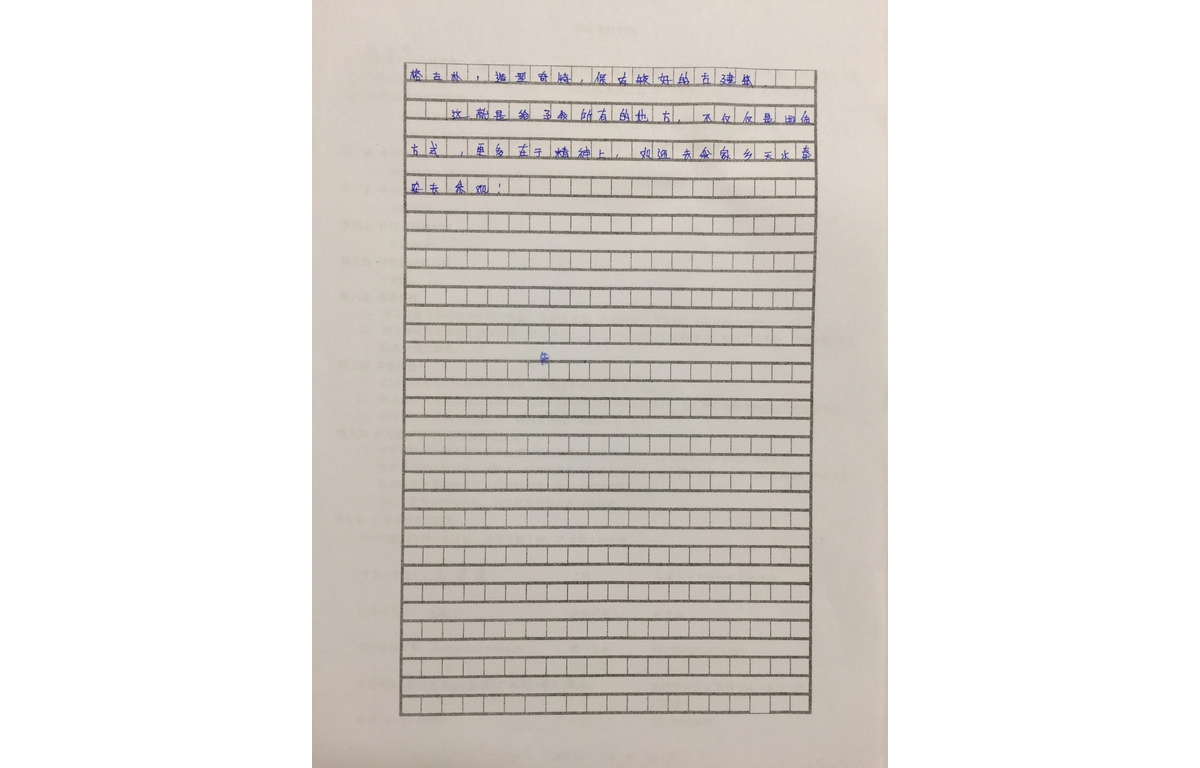 格古朴，造型奇特，保存较好的古建筑.
这就是给予我所有的地方，不仅仅是
方式，更多在于精神上，欢迎去我家乡天水秦
安去参观！